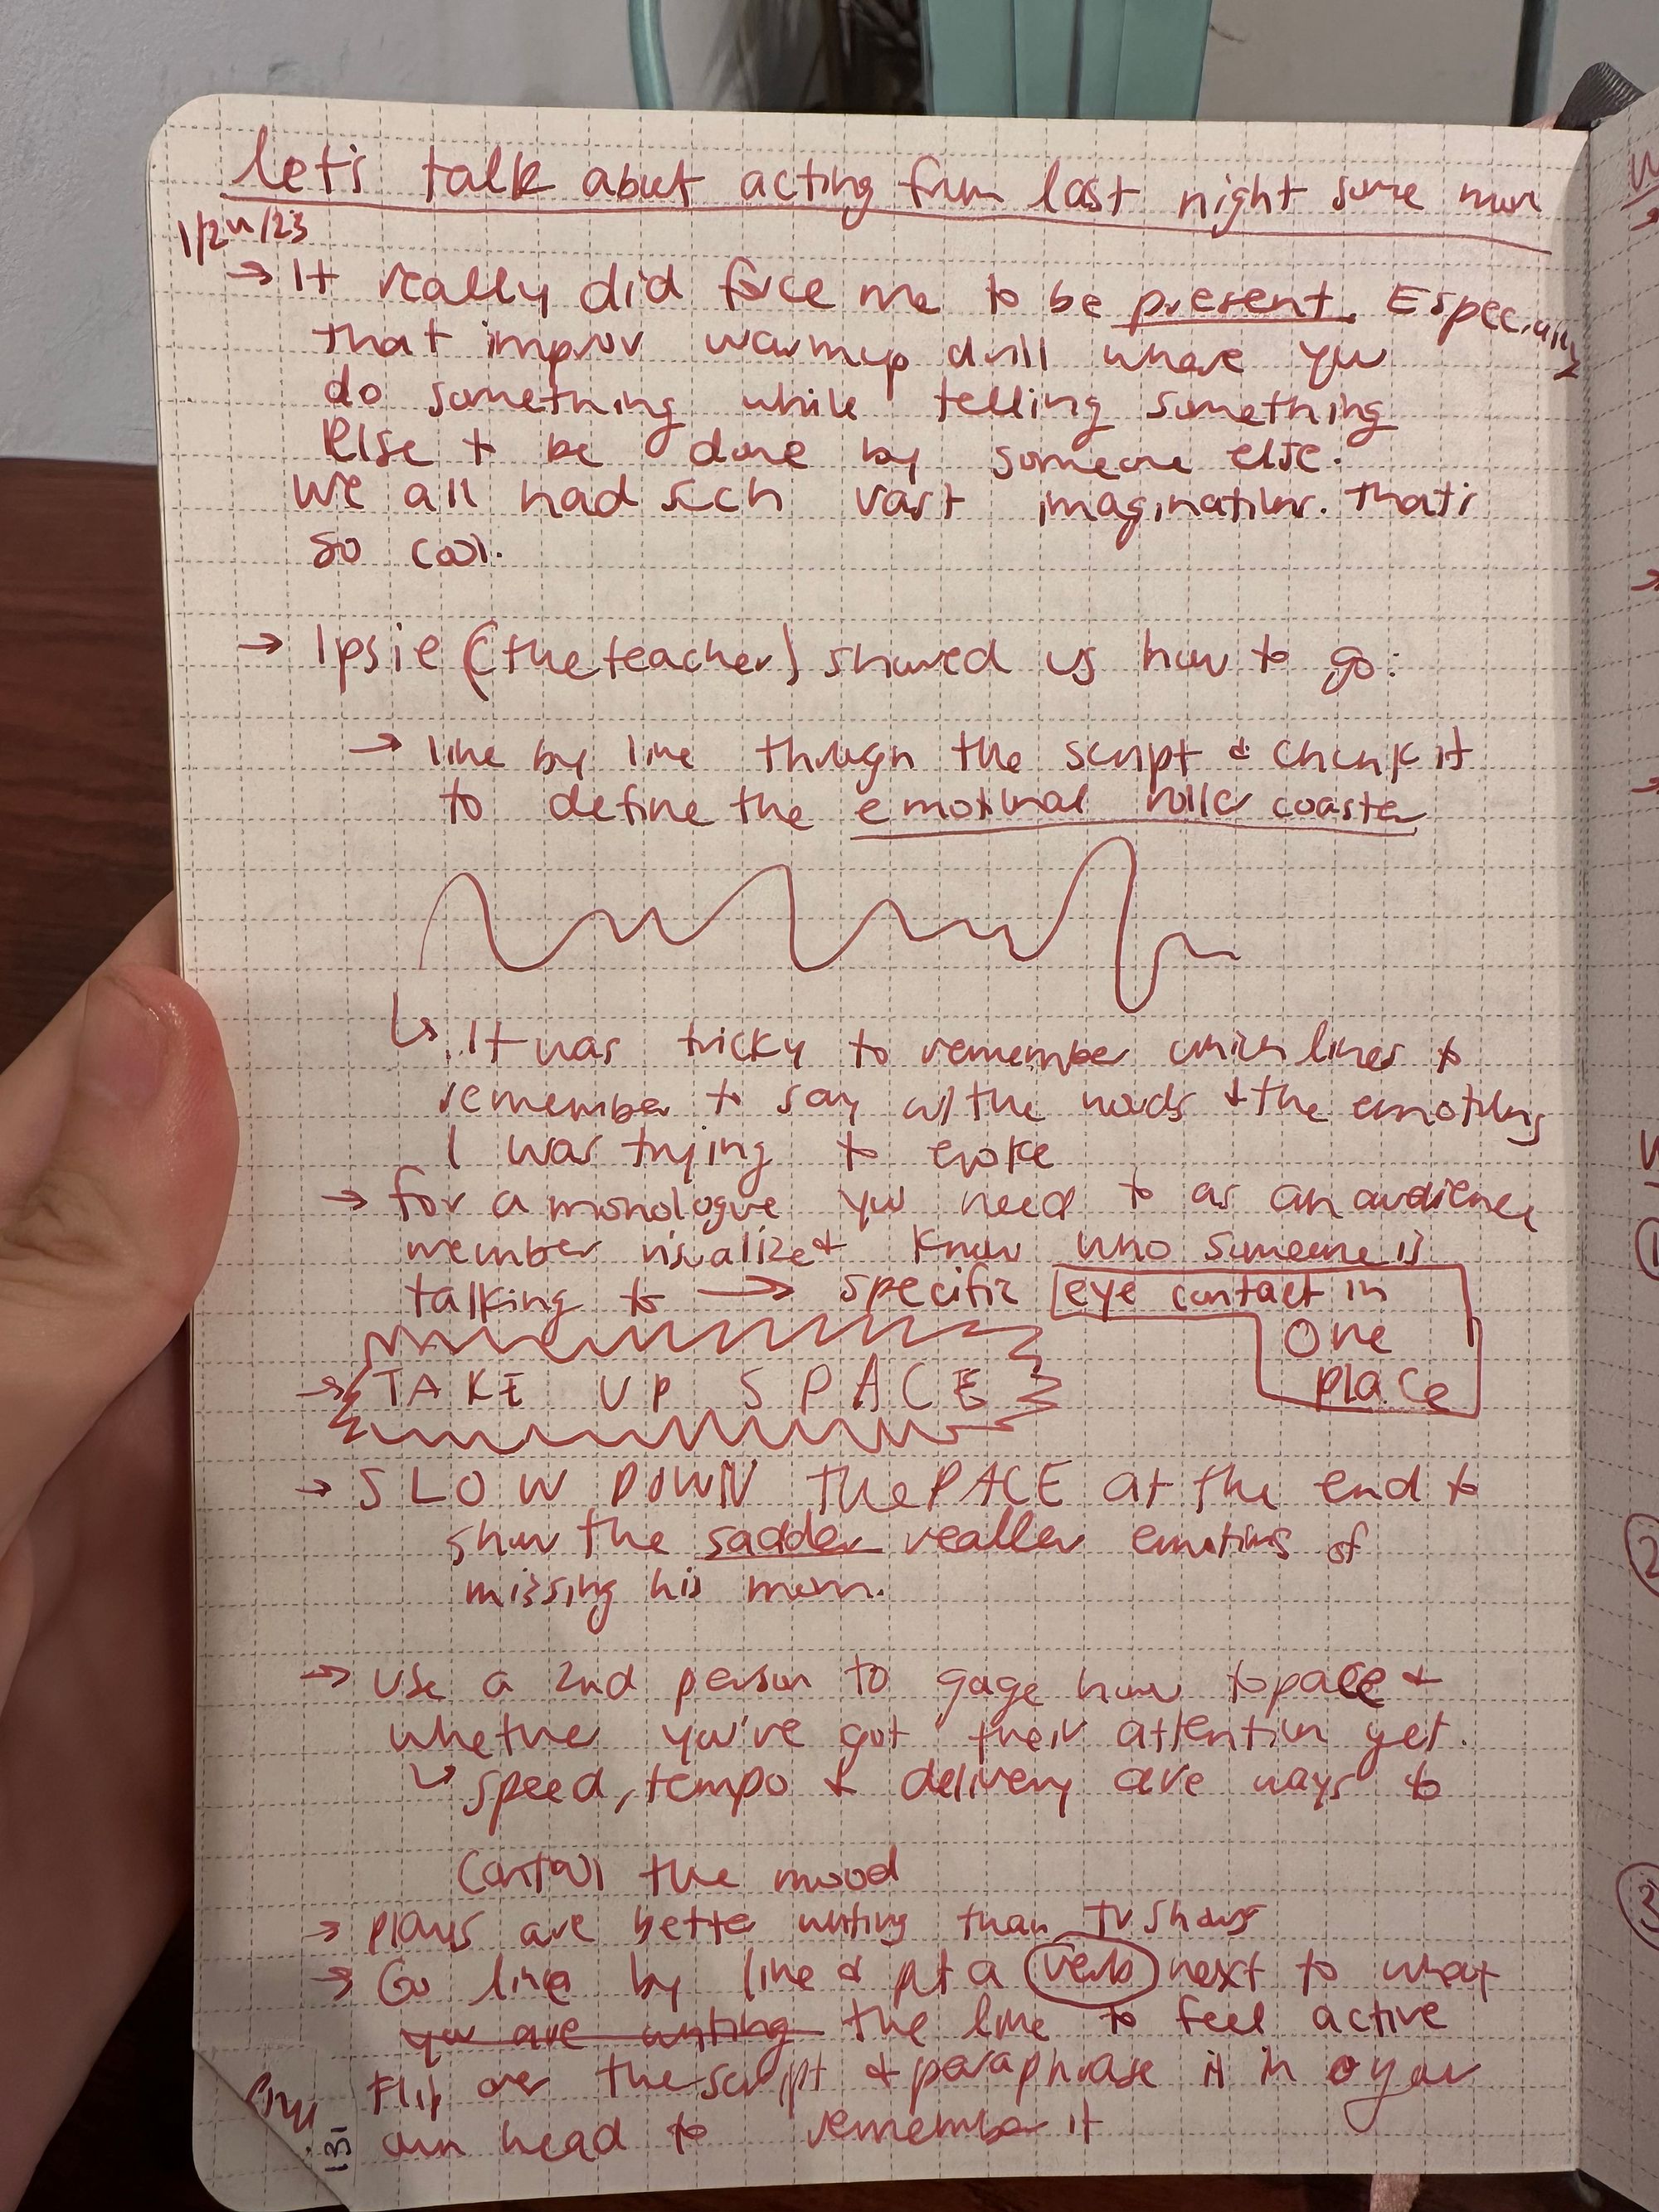 let's talk about acting from last night some more
1/24/23
→ It really did force me to be present. Especially
that improv warmup drill where you
do something while telling something
else to be done by someone else.
We all had such vast imaginations. that's
so cool.
→ Ipsie (the teacher) showed us how to go:
→ line by line through the script & chunk it
to define the emotional roller coaster
↳ It was tricky to remember which lines to
remember to say w/ the words & the emotions
I was trying to evoke
→ for a monologue you need to as an audience
member visualize & know who someone is
talking to → specific eye contact in
one
place
→ TAKE UP SPACE
→ SLOW DOWN the PACE at the end to
show the sadder realler emotions of
missing his mom.
→ Use a 2nd person to gage how to pace &
whether you've got their attention yet.
↳ speed, tempo & delivery are ways to
control the mood
→ plays are better writing than TV shows
→ Go line by line & put a verb next to what
you are writing the line to feel active
Flip over the script & paraphrase it in your
own head to remember it
131